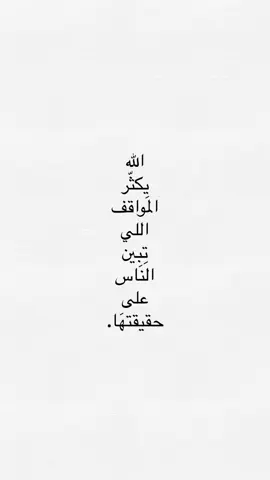 الله
يِكثّر
المَواقف
اللي
تِبِين
النَاس
على
حقيقتهَا.